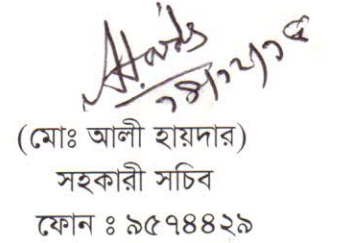 ১৪/১২/১৫
(মোঃ আলী হায়দার)
সহকারী সচিব
ফোন ঃ ৯৫৭৪৪২৯